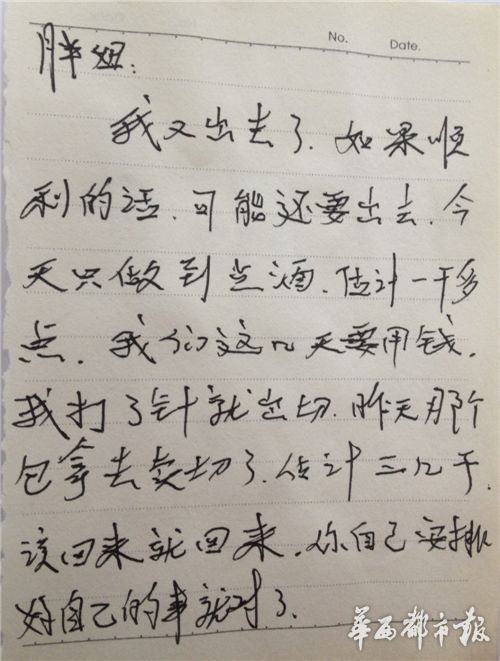 No. Date.
胖妞：
我又出去了.如果顺
利的话.可能还要出去.今
天只做到兰酒.估计一千多
点.我们这几天要用钱.
我打了针就出切.昨天那个
包拿去卖切了.估计三几千.
该回来就回来.你自己安排
好自己的事就对了.
华西都市报